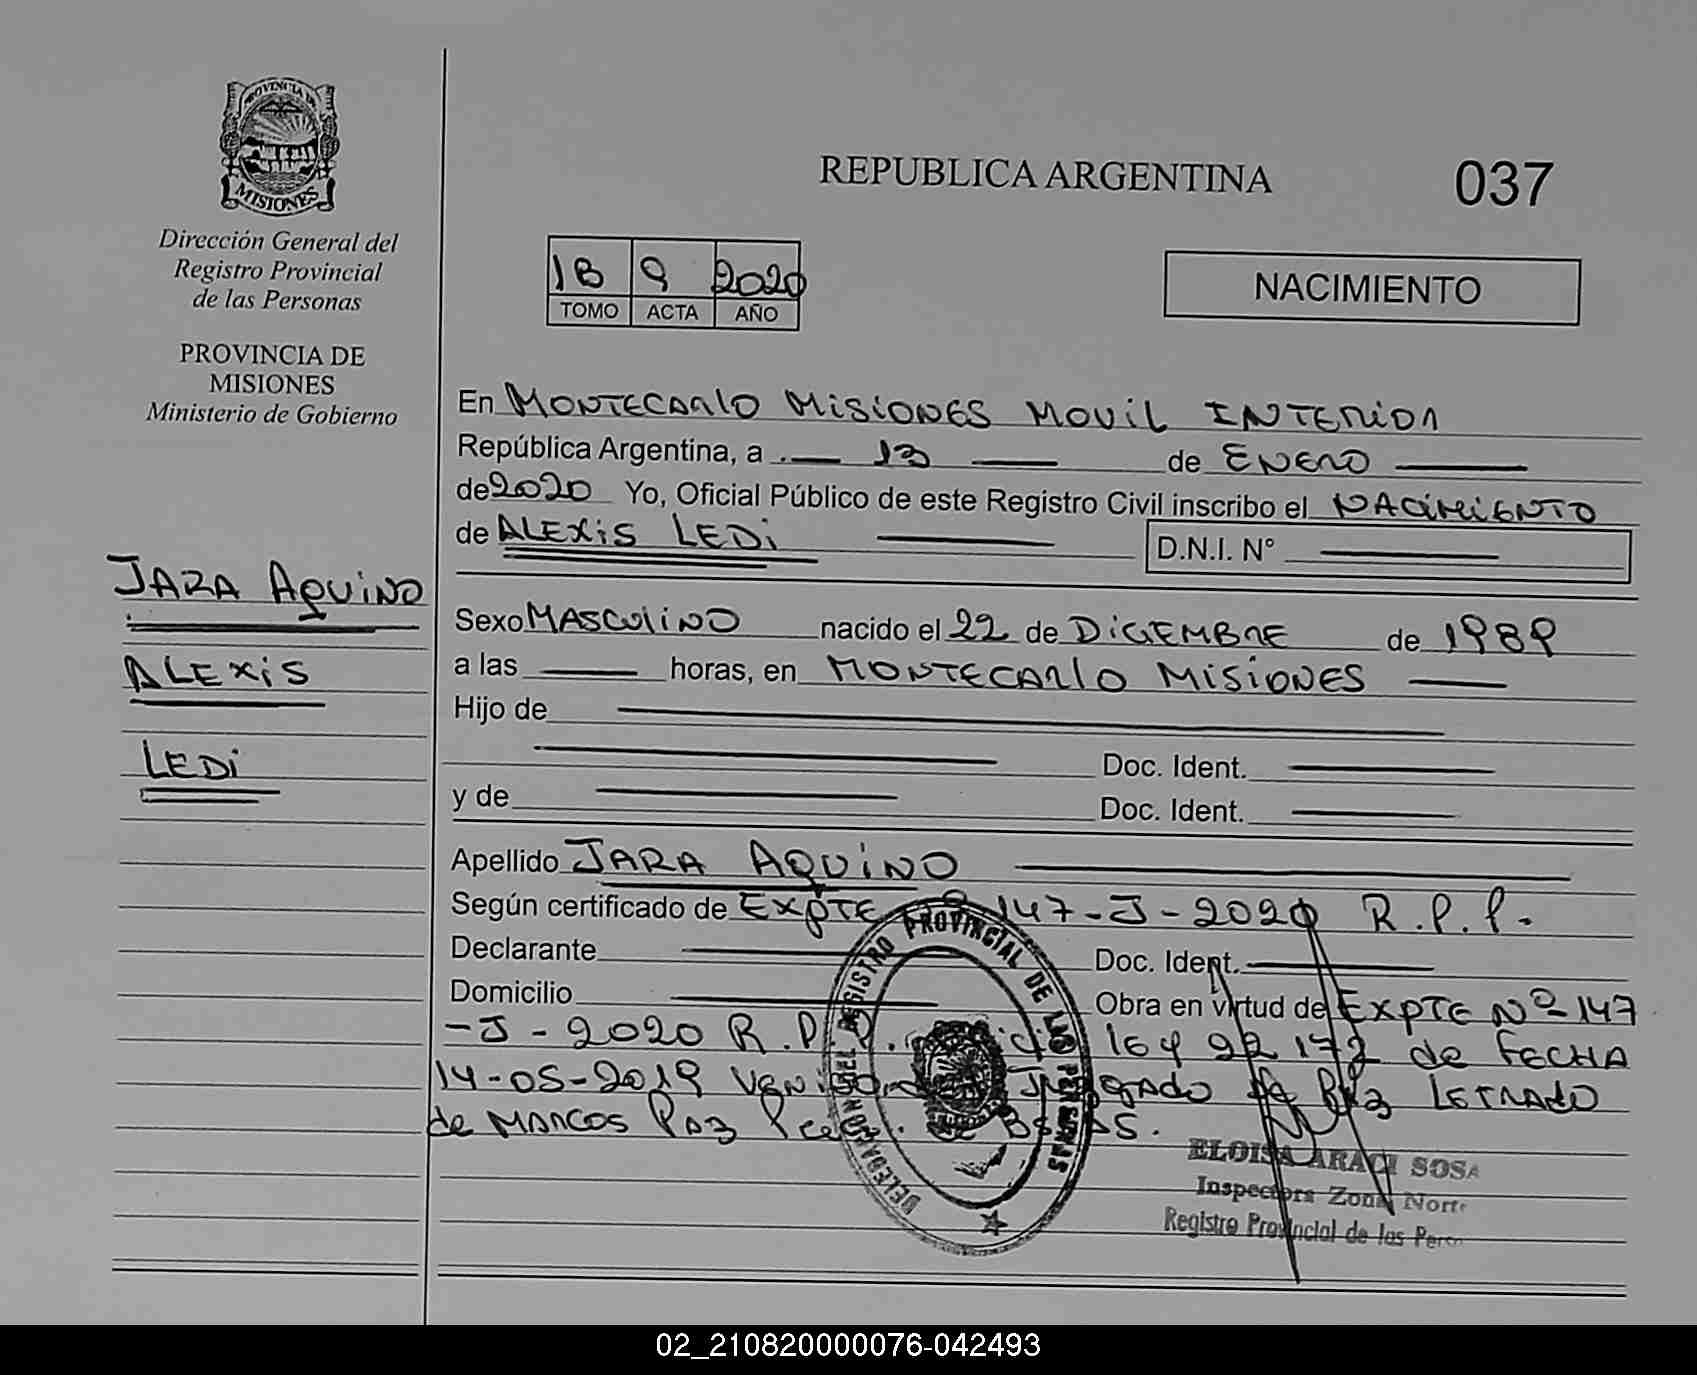 PROVINCIA DE
MISIONES
Dirección General del
Registro Provincial
de las Personas
PROVINCIA DE
MISIONES
Ministerio de Gobierno
JARA AQUINO
ALEXIS
LEDI
REPUBLICA ARGENTINA
037
1B 9 2020
TOMO ACTA AÑO
NACIMIENTO
En MONTECARLO MISIONES MOVIL INTERIOR
República Argentina, a 13 de ENERO
de 2020 Yo, Oficial Público de este Registro Civil inscribo el NACIMIENTO
de ALEXIS LEDI D.N.I. N°
Sexo MASCULINO nacido el 22 de DICIEMBRE de 1989
a las horas, en MONTECARLO MISIONES
Hijo de
Doc. Ident.
y de Doc. Ident.
Apellido JARA AQUINO
Según certificado de EXPTE 147-J-2020 R.P.P.
Declarante Doc. Ident.
Domicilio Obra en virtud de EXPTE Nº 147
-J-2020 R.P.P. ley 22172 de FECHA
14-05-2019 JUZGADO de PAZ LETRADO
de MARCOS PAZ BS AS.
DELEGACION DEL REGISTRO PROVINCIAL DE LAS PERSONAS
ELOISA ARACI SOSA
Inspectora Zona Norte
Registro Provincial de las
02_210820000076-042493